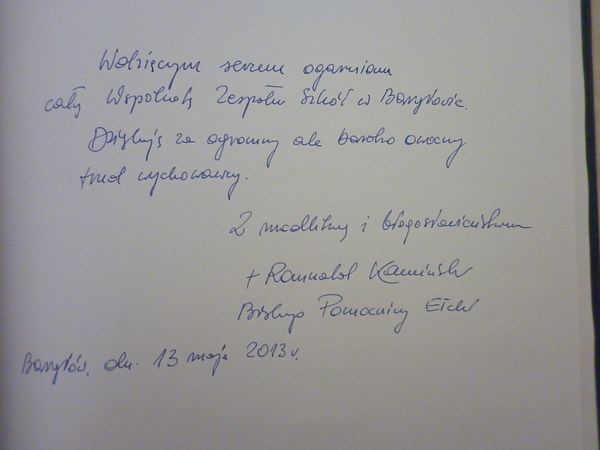 Wdzięcznym sercem ogarniam
całą Wspólnotę Zespołu Szkół w
Dziękuję za ogromny ale bardzo owocny
trud wychowawczy.
Z modlitwą i błogosławieństwem
+ Romuald Kamiński
Biskup Pomocniczy Ełcki
dn. 13 maja 2013 r.